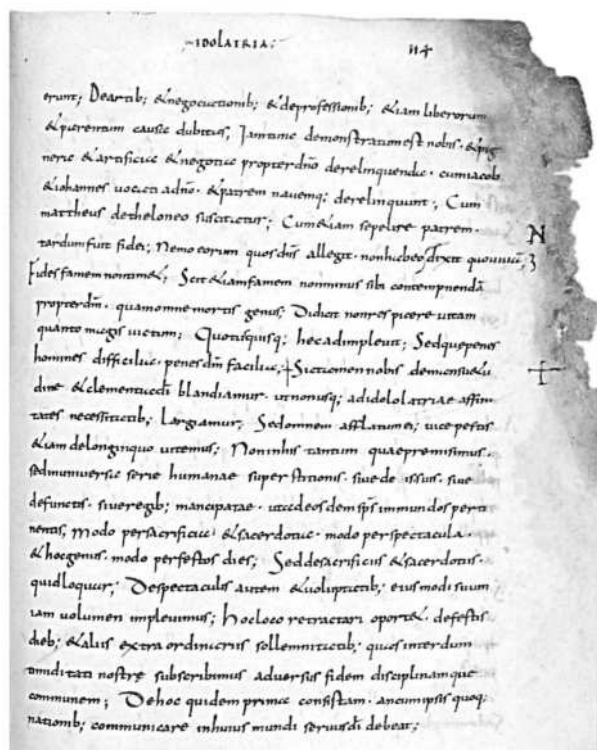 -IDOLATRIA;
114
erunt; Deartib; &negocuctionib; &deprofessionib; &iam liberorum
&parentum causa dubitas, Jamtunc demonstratum est nobis. &pig
nera &artificia &negotia propterdnō derelinquenda. cumiacob
&iohannes vocati adnō. &patrem nauemq; derelinquunt; Cum
mattheus detheloneo suscitatur; Cum&iam sepelire patrem.
tardumfuit fidei; Nemo eorum quos dn̄s allegit. nonhabeo dixit quouiuā;
Fides famem nontim&; Scit &iamfamem nonminus sibi contempnendā
propterdm̄. quamomne mortis genus; Didicit nonrespicere uitam
quanto magis uictum; Quotusquisq; hec adimpleuit; Sedquepenes
homines difficilia. penes dm̄ facilia; + Sic tamen nobis demansu&u
dine &clementia dī blandiamur. utnonusq; adidololatriae affini
tates necessitatib; Largiamur; Sedomnem afflatum ei; uice pestis
&iam delonginquo uitemus; Noninhis tantum quaepremisimus.
sedinuniuersa serie humanae superstitionis. siue deis suis. siue
defunctis. siueregib; mancipatae. utadeosdem sps̄ inmundos perti
nentis, modo persacrificia &sacerdotia. modo perspectacula.
&hocgenus. modo perfestos dies; Sed desacrificiis &sacerdotiis.
quidloquar; Despectaculis autem &uoluptatib; eiusmodi suum
iam uolumen impleuimus; hocloco retractari oport&. defestis
dieb; &aliis extraordinariis sollemnitatib; quas interdum
timiditati nostre subscribimus aduersus fidem disciplinamque
communem; Dehoc quidem prima consistam. ancumipsis quoq;
nationib; communicare inhuius mundi seruus dī debeat;